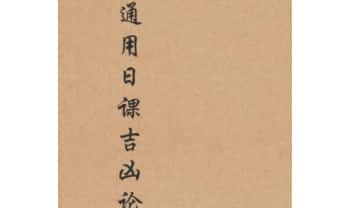 通用日课吉凶论